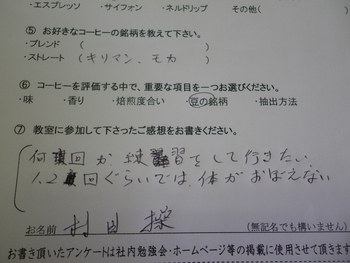 ・エスプレッソ ・サイフォン ・ネルドリップ その他(
⑤ お好きなコーヒーの銘柄を教えて下さい。
・ブレンド ( )
・ストレート (キリマン、モカ )
⑥ コーヒーを評価する中で、重要な項目を一つお選びください。
・味 ・香り ・焙煎度合い ・豆の銘柄 ・抽出方法
⑦ 教室に参加して下さったご感想をお書きください。
何回か練習をして行きたい
1、2回ぐらいでは、体がおぼえない
お名前 村田 操 (無記名でも構いません)
お書き頂いたアンケートは社内勉強会・ホームページ等の掲載に使用させて頂きます